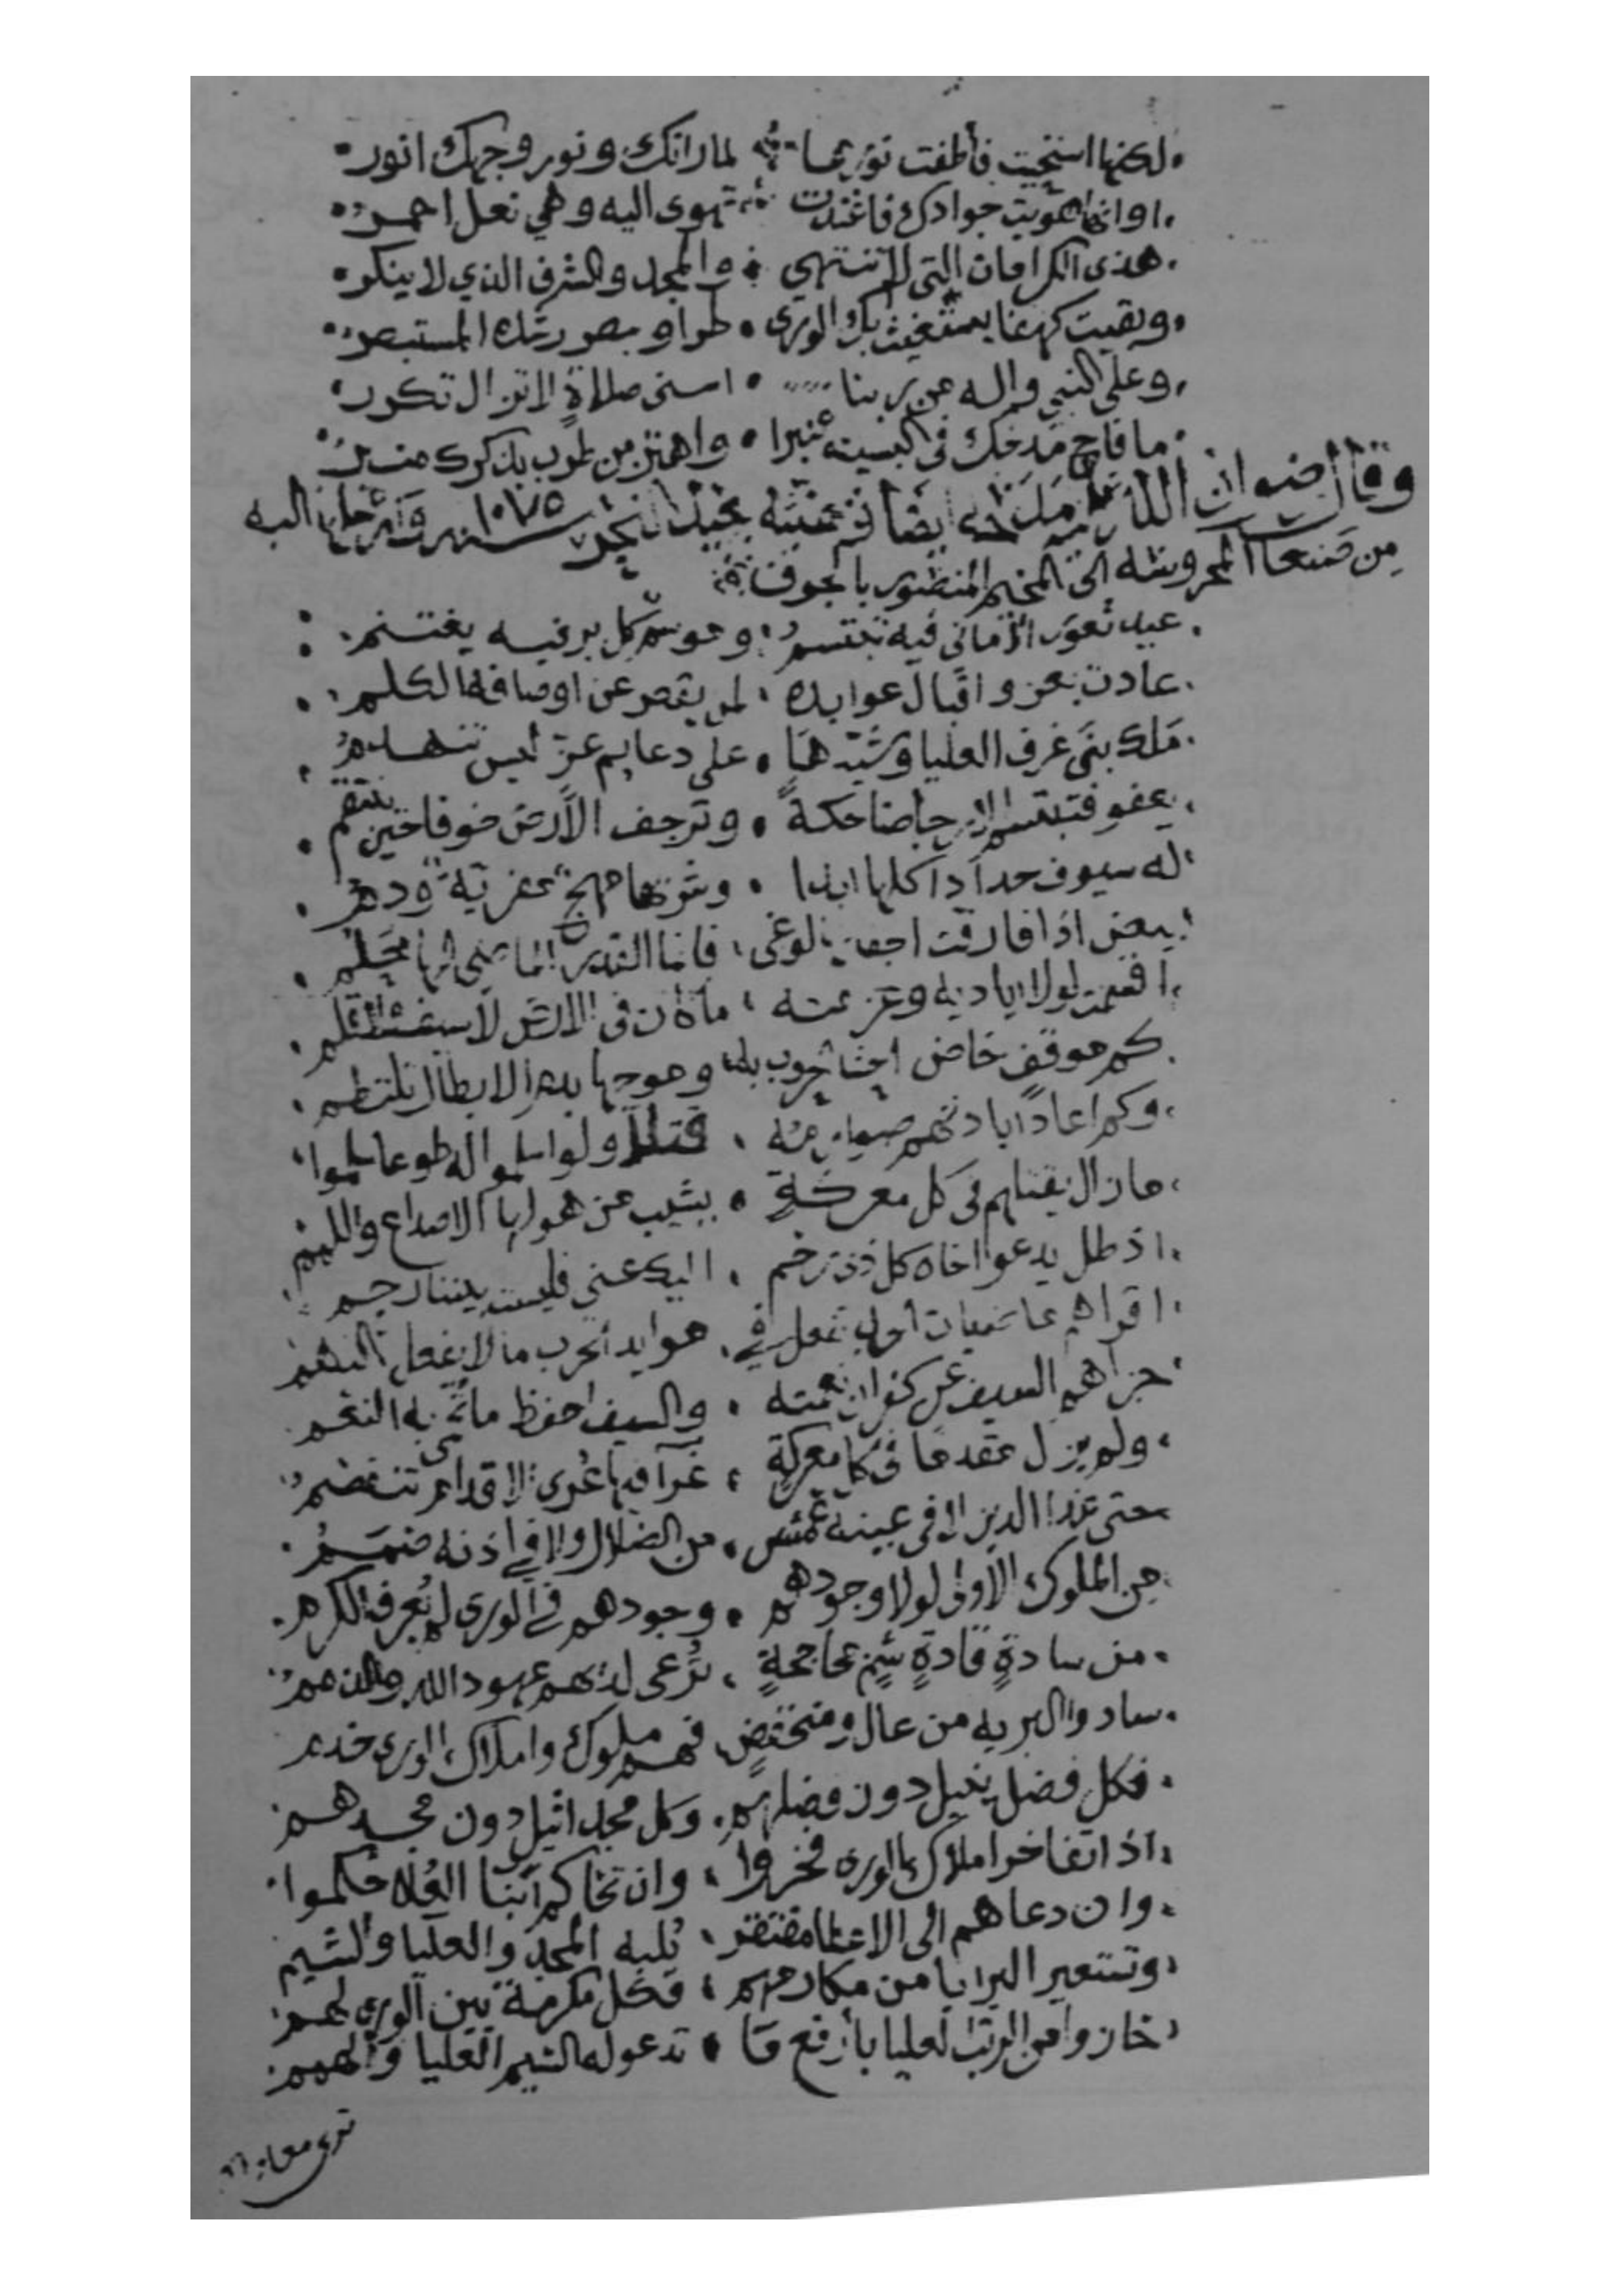 لكنها استحيت فأطفت نورها لما راتك ونور وجهك انور
او انها هويت جوادك فاغتدت تهوى اليه وهي نعل احمر
هذى الكرامات التي لا تنتهي والمجد والشرف الذي لا ينكر
وبقيت كهفا يستغيث بك الورى طرا و رشده المستبصر
وعلى النبي واله من ربنا اسنى صلاة لا تزال تكرر
ما فاح مدحك في البسيطة عنبرا واهتز من طرب بذكرك منبر
وقال رضوان الله عليه ايضا سنة ١٠٧٥ وارسلها اليه
من صنعا المحروسه الى المخيم المنصور بالجوف
عيد ثغور الاماني فيه تبتسم وموسم كل بر فيه يغتنم
عادت بعز واقبال عوايده لمن يقصر عن اوصافه الكلم
ملك بنى غرف العليا وشيدها على دعايم عز ليس تنهدم
يعفو فتبتسم الارجا ضاحكة وترجف الأرض خوفا حين ينتقم
له سيوف حداد اكلها ابدا وشربها مهج ودم
بيض اذا فارقت الوغى فانما
اقسمت لولا اياديه وعزمته ما كان في الارض
كم موقف خاض احشا الحروب به وموجها بدم الابطال تلتطم
وكم اعاد ابادتهم قتلا ولو اسلموا له طوعا سلموا
ما زال يقتلهم في كل معركة يشيب من هولها الاصداغ واللمم
اذ ظل يدعو اخاه كل ذى رحم اليك عني فليست بيننا رحم
الحرب ما لا يفعل
جزاهم السيف عن كفران نعمته والسيف احفظ ما به النعم
ولم يزل مقدما في كل معركة غرآ فيها عرى الاقدام تنفصم
حتى غدا الدين لا في عينه عمش من الضلال ولا في أذنه صمم
من الملوك الأولى لولا وجودهم وجودهم في الورى لم يعرف الكرم
من سادة قادة شم جحاجحة ترعى لديهم عهود الله والذمم
سادوا البريه من عال ومنخفض فهم ملوك واملاك الورى خدم
فكل فضل دون فضلهم وكل مجد اثيل دون مجدهم
اذا تفاخر املاك الورى فخروا وان تحاكم ابنا العلا حكموا
وان دعاهم الى الاعطا مفتقر تلبه المجد والعليا والشيم
وتستعير البرايا من مكارمهم فكل مكرمة بين الورى لهم
حازوا من الرتب العليا بأرفع ما تدعو له الشيم العليا والهمم